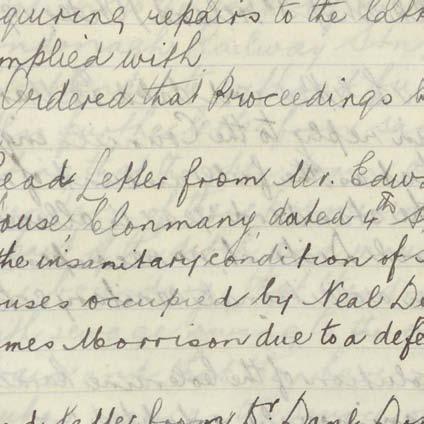 quiring repairs to the
mplied with
Ordered that Proceedings
ead Letter from Mr. Edw
ouse, Clonmany, dated 4th
the insanitary condition of
uses occupied by Neal
mes Morrison due to a defe
Letter from Dr.